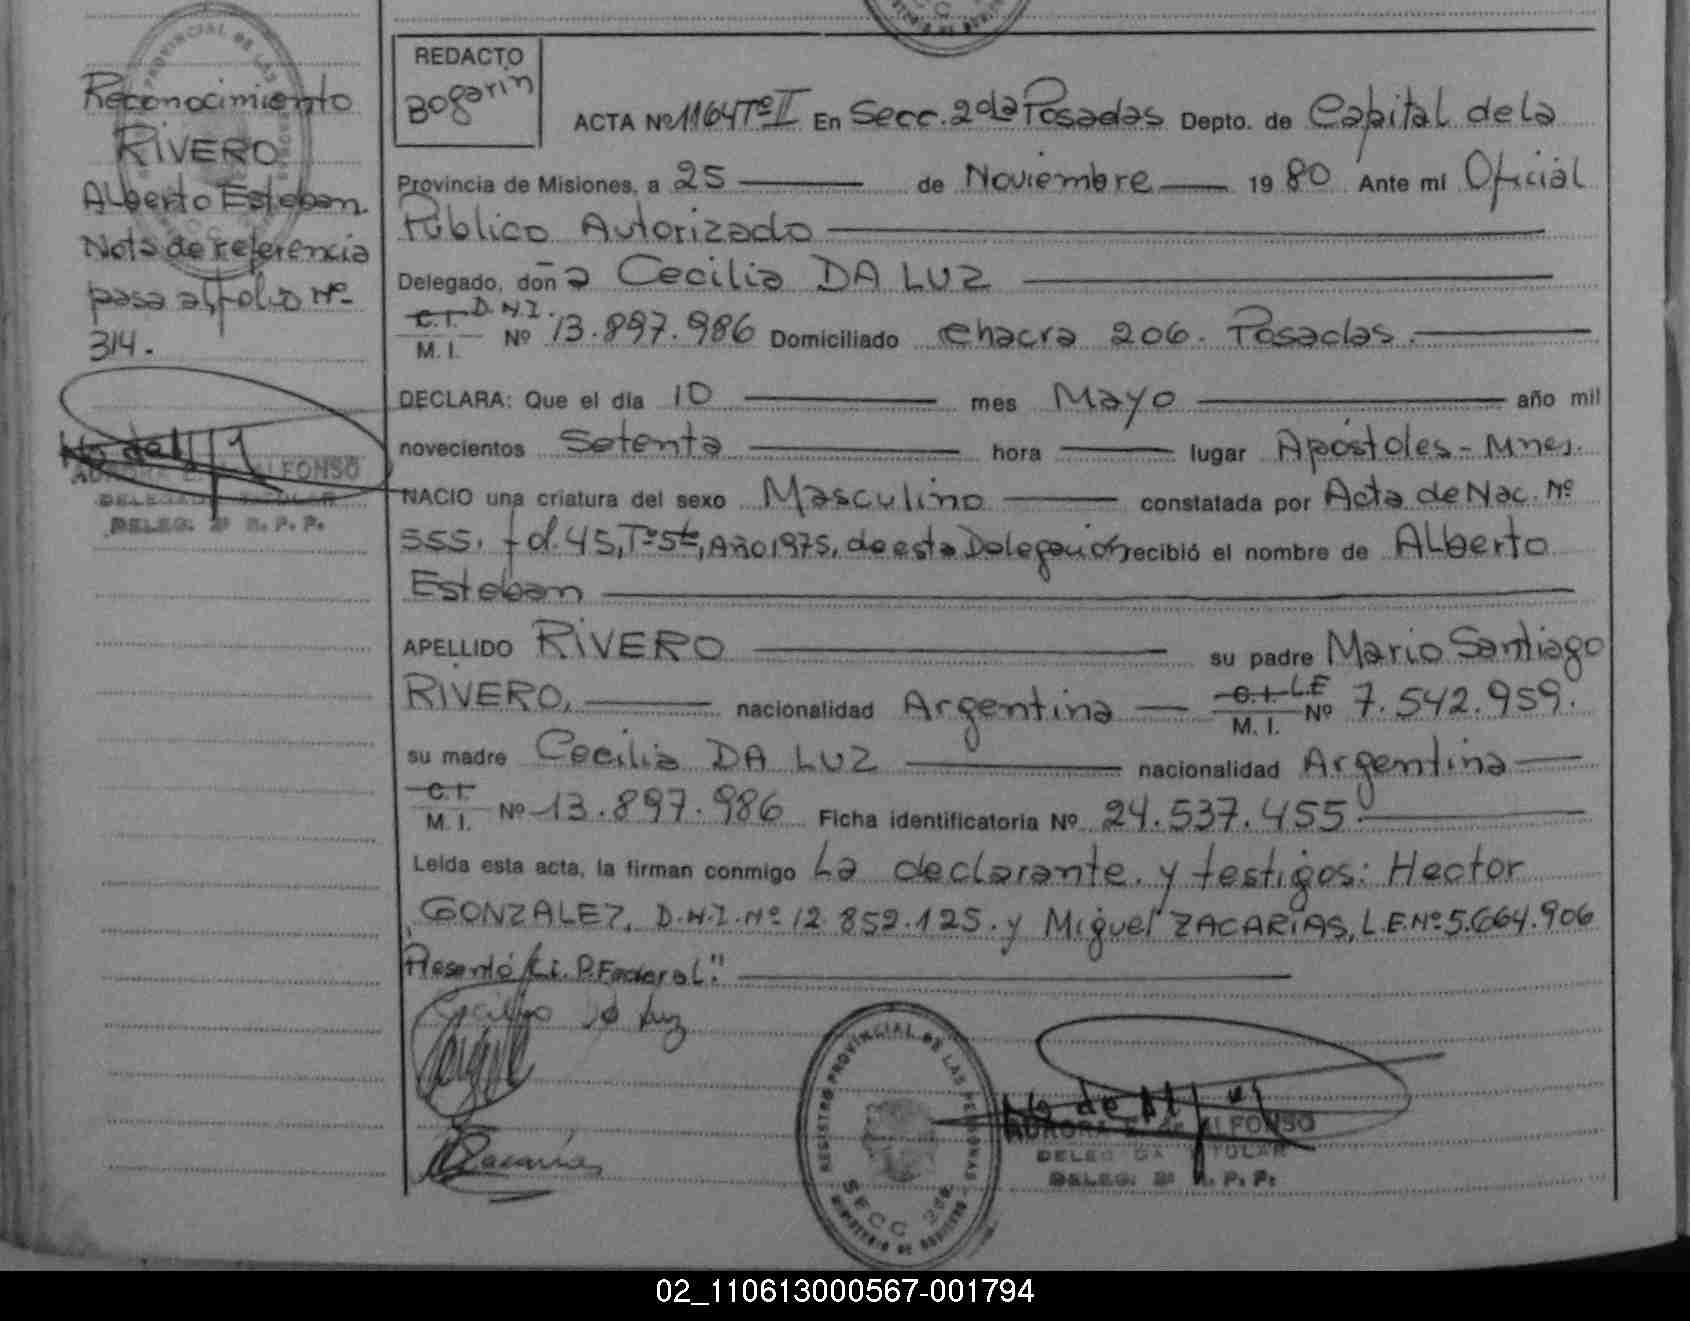 Reconocimiento
RIVERO
Alberto Esteban
Nota de referencia
pasa al folio Nº
314.
ALFONSO
DELEGADA TITULAR
DELEG. 2ª R. P. P.
REDACTO
Bogarin
ACTA Nº 1164 Tº II En Secc. 2da Posadas Depto. de Capital de la
Provincia de Misiones, a 25 de Noviembre 1980 Ante mi Oficial
Público Autorizado
Delegado, doña Cecilia DA LUZ
C.I. D.N.I.
M. I. Nº 13.897.986 Domiciliado chacra 206. Posadas.
DECLARA: Que el día 10 mes Mayo año mil
novecientos Setenta hora lugar Apóstoles - Mnes.
NACIO una criatura del sexo Masculino constatada por Acta de Nac. Nº
555. fol. 45, Tº 5to, Año 1975, de esta Delegación recibió el nombre de Alberto
Esteban
APELLIDO RIVERO su padre Mario Santiago
RIVERO, nacionalidad Argentina C.I. L.E M. I. Nº 7.542.959.
su madre Cecilia DA LUZ nacionalidad Argentina
C.I. M. I. Nº 13.897.986 Ficha identificatoria Nº 24.537.455.
Leida esta acta, la firman conmigo La declarante y testigos: Hector
GONZALEZ, D.N.I. Nº 12.852.125. y Miguel ZACARIAS, L.E. Nº 5.664.906
Presentó C.i. P. Federal."
Cecilia Da Luz
Zacarias
REGISTRO PROVINCIAL DE LAS PERSONAS
SECC. 2da.
MINISTERIO DE GOBIERNO
AURORA E. de ALFONSO
DELEGADA TITULAR
DELEG. 2ª R. P. P.
02_110613000567-001794